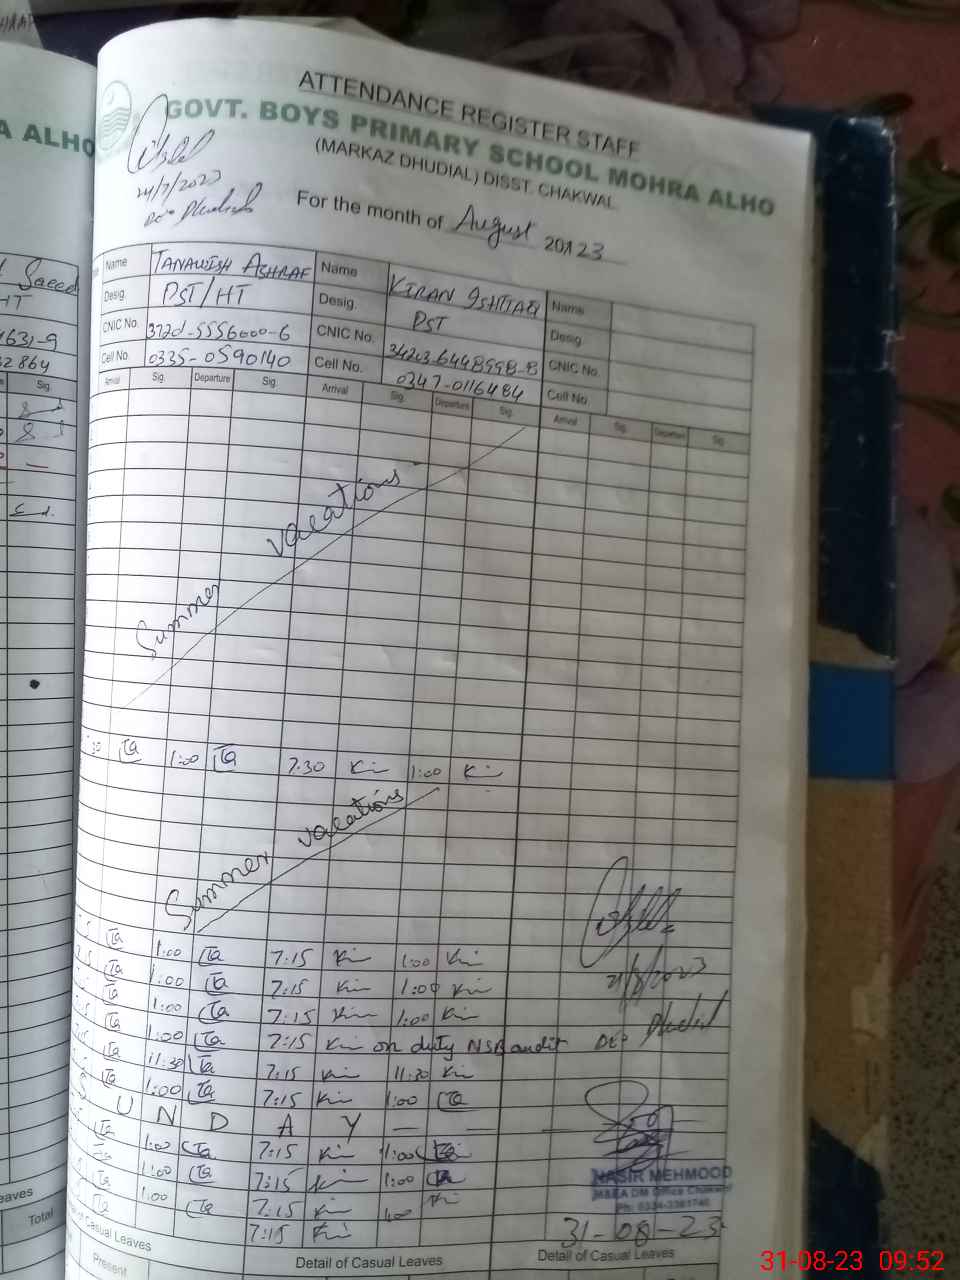 ATTENDANCE REGISTER STAFF
GOVT. BOYS PRIMARY SCHOOL MOHRA ALHO
(MARKAZ DHUDIAL) DISST. CHAKWAL
24/7/2023
For the month of August 20123
A ALHO
Saeed
HT
4631-9
2864
Sig.
Name TANAWISH ASHRAF Name KIRAN ISHTIAQ Name
Desig. PST/HT Desig. PST Desig.
CNIC No. CNIC No. CNIC No.
Cell No. 0335-0590140 Cell No. 0347-0116484 Cell No.
Arrival Sig. Departure Sig. Arrival Sig. Departure Sig. Arrival Sig. Departure Sig.
Summer vacations
:30 Ta 1:00 Ta 7:30 Ki 1:00 Ki
Summer vacations
Ta 1:00 Ta 7:15 Ki 1:00 Ki
Ta 1:00 Ta 7:15 Ki 1:00 Ki
21/8/2023
Ta 1:00 Ta 7:15 Ki 1:00 Ki
Ta 1:00 Ta 7:15 Ki on duty NSB audit
Dhudial
Ta 11:30 Ta 7:15 Ki 11:30 Ki
Ta 1:00 Ta 7:15 Ki 1:00 Ta
S U N D A Y — —
Ta 1:00 Ta 7:15 Ki 1:00
1:00 Ta 7:15 Ki 1:00
1:00 Ta 7:15 Ki 1:00 Ki
7:15 Ki
NASIR MEHMOOD
MEA DM Office Chakwal
31-08-23
eaves
Total
of Casual Leaves
Present
Detail of Casual Leaves
Detail of Casual Leaves
31-08-23 09:52